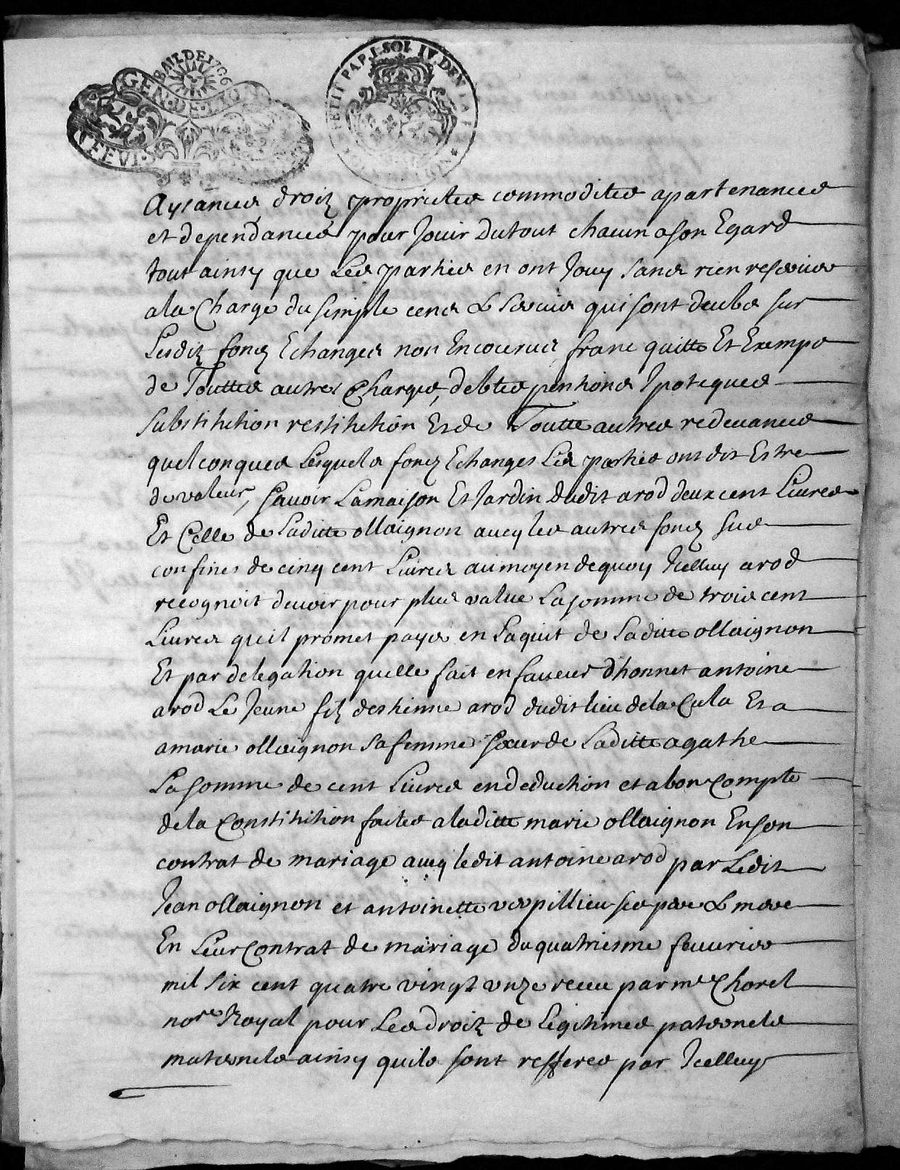 BAIL DE 1706
GEN. DE LYO
NEFF VI S
PETIT PAP. 1 SOL IV DEN LA F
Aysances droiz proprietes commodites apartenances
et dependances pour Jouir dutout chacun ason Egard
tout ainsy que Les parties en ont Jouy sans rien reserver
ala Charge du simple cens & servis qui sont deubs sur
Lesdiz fonez Echanges non Encourus franc quitte Et Exemps
de Touttes autres Charges, debtes pentions Ipoteques
substitution restitution Et de Toutte autres redevances
quelconques Lesquels fonez Echanges Les parties ont dit Estre
de valeur, sçavoir Lamaison Et Jardin dudit arod deux cent Livres
Et Celle de Laditte ollaignon avecq les autres fonez sus
confines de cinq cent Livres aumoyen dequoy Icelluy arod
recognoit devoir pour plus value La somme de trois cent
Livres quil promet payer en Laquit de Laditte ollaignon
Et par delegation quelle fait en faveur d'honnet antoine
arod Le Jeune filz destienne arod dudit lieu de la Cula Et a
amarie ollaignon safemme sœur de Laditte agathe
La somme de cent Livres endeduction et abon compte
dela Constitution faite aladitte marie ollaignon Enson
contrat de mariage avecq ledit antoine arod par Ledit
Jean ollaignon et antoinette verpillieu ses pere & mere
En Leur contrat de mariage du quatriesme fevvrier
mil six cent quatre vingt unze receu par me Chorel
nore Royal pour Les droiz de Legitimes paternels
maternels ainsy quils sont refferes par Icelluy